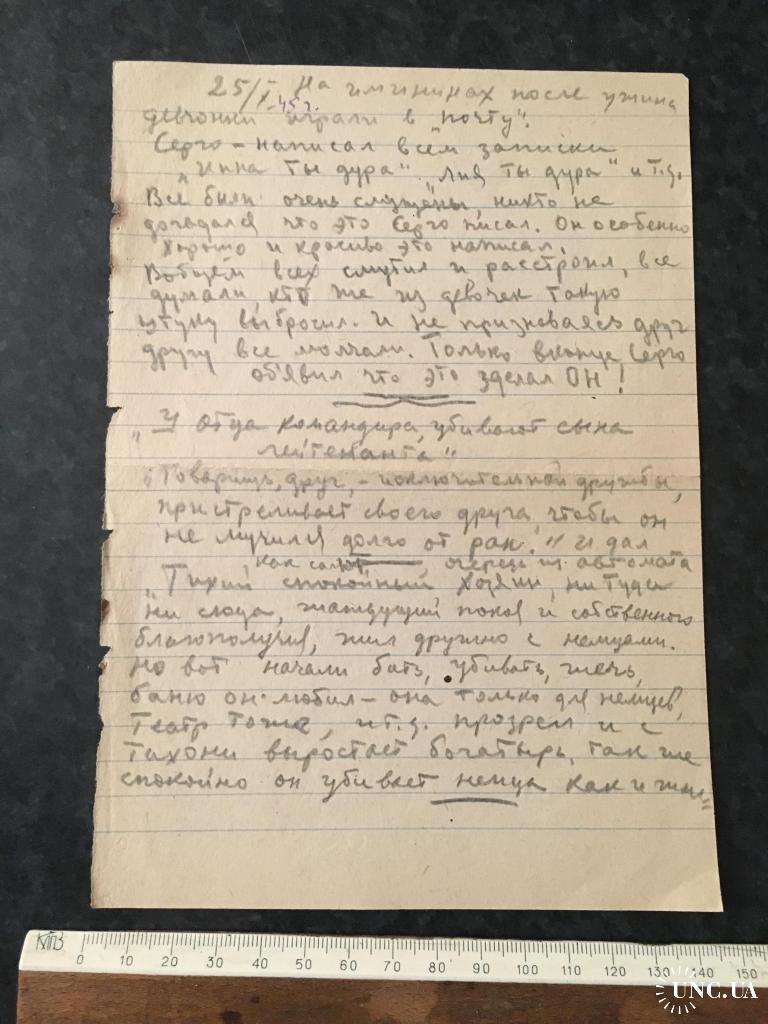 25/I-45г. На именинах после ужина
девчонки играли в "почту".
Серго - написал всем записки
"Инна ты дура" "Лия ты дура" и т.д.
Все были очень смущены, никто не
догадался что это Серго писал. Он особенно
хорошо и красиво это написал.
Вобщем всех смутил и расстроил, все
думали, кто же из девочек такую
штуку выбросил. И не признаваясь друг
другу все молчали. Только вконце Серго
об'явил что это зделал ОН!
"У отца командира, убивают сына
лейтенанта"
"Товарищ, друг, - исключительной дружбы,
пристреливает своего друга, чтобы он
не мучился долго от ран." И дал
, как салют, очередь из автомата
"Тихий спокойный хозяин, ни туда
ни сюда, жаждущий покоя и собственного
благополучия, жил дружно с немцами.
Но вот начали бить, убивать, жечь,
баню он любил - она только для немцев,
театр тоже, и т.д. прозрел и с
тихони выростает богатырь, так же
спокойно он убивает немца как и жил"
КТПЗ
0 10 20 30 40 50 60 70 80 90 100 110 120 130 140 150
UNC.UA